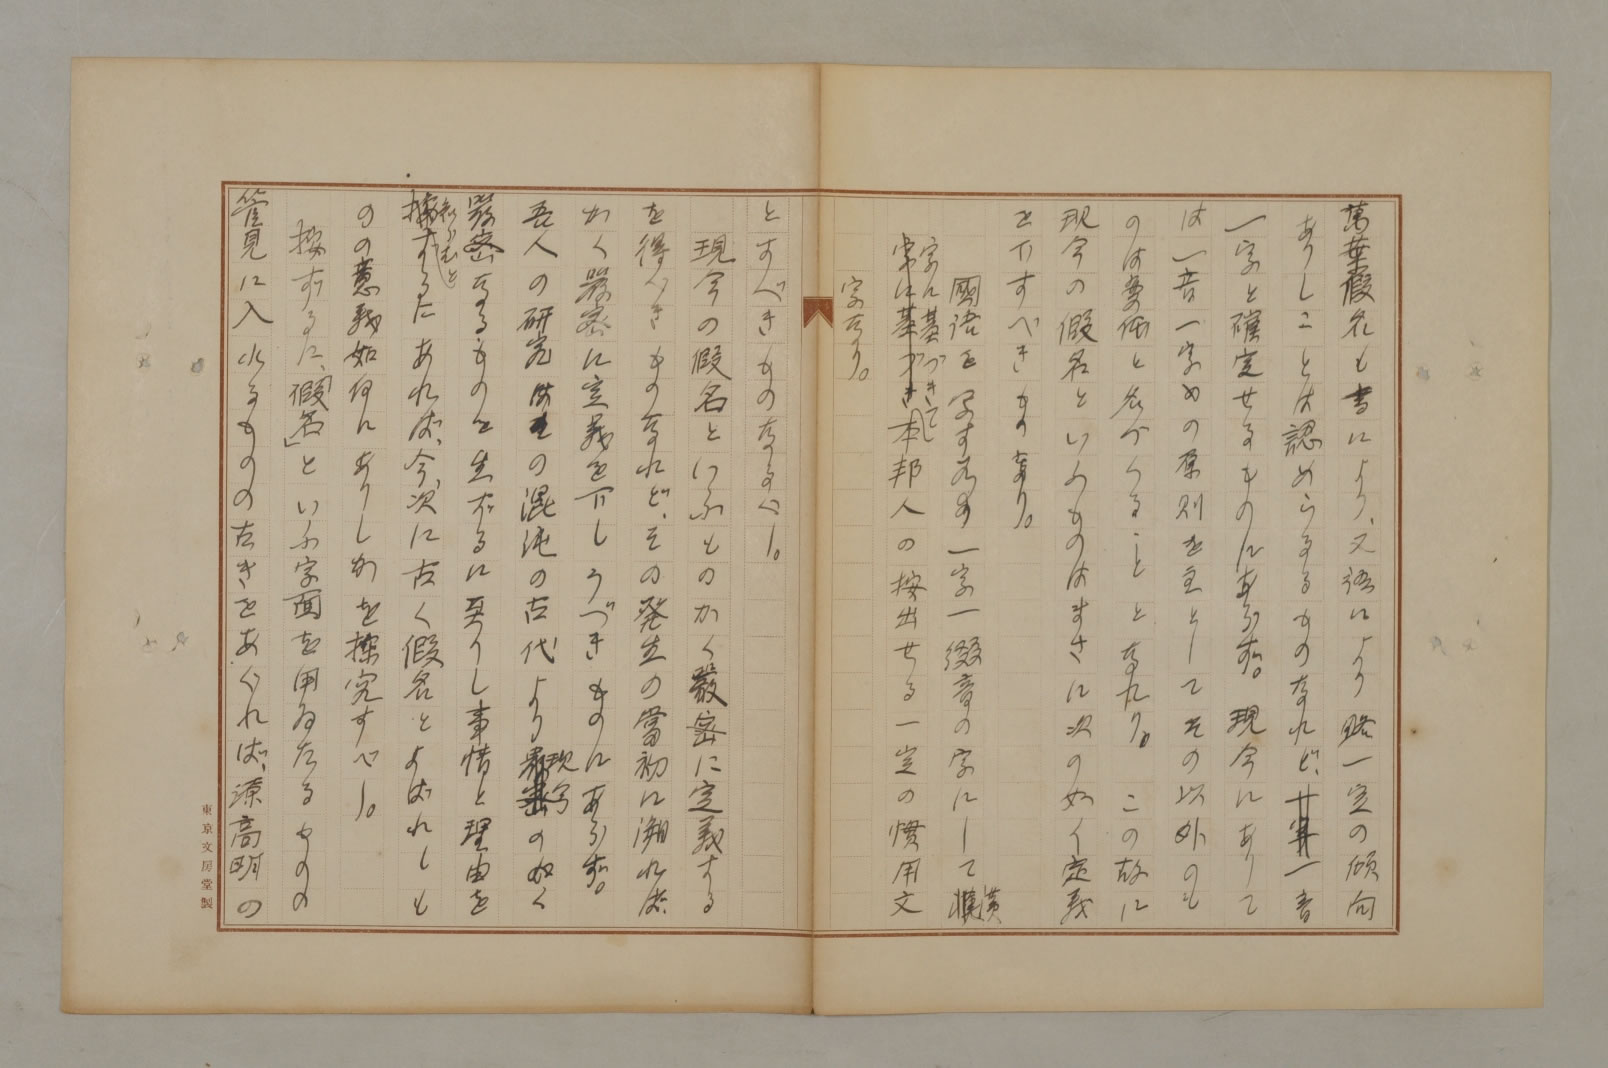 萬葉假名も書により、文語により略一定の傾向
ありしことは認めらるるものなれど、一音
一字と確定せるものにあらず。現今にありて
は一音一字めの原則を主としてその以外のも
のは變体と名づくることとなれり。この故に
現今の假名といふものはまさに次の如く定義
を下すべきものなり。
國語を写す爲の一字一綴音の字にして漢
字に基づきてし本邦人の按出せる一定の慣用文
字なり。
とすべきものなるべし。
現今の假名といふものかく嚴密に定義する
を得べきものなれど、その発生の當初に溯れば
かく嚴密に定義を下しうべきものにあらず。
吾人の研究はの混沌の古代より現今の如く
嚴密なるものを生ずるに至りし事情と理由を
知らむとするにあれば、今、次に古く假名とよばれしも
のの意義如何にありしかを探究すべし。
按ずるに、「假名」といふ字面を用ゐたるものの
管見に入れるものの古きをあぐれば、源高明の
東京文房堂製